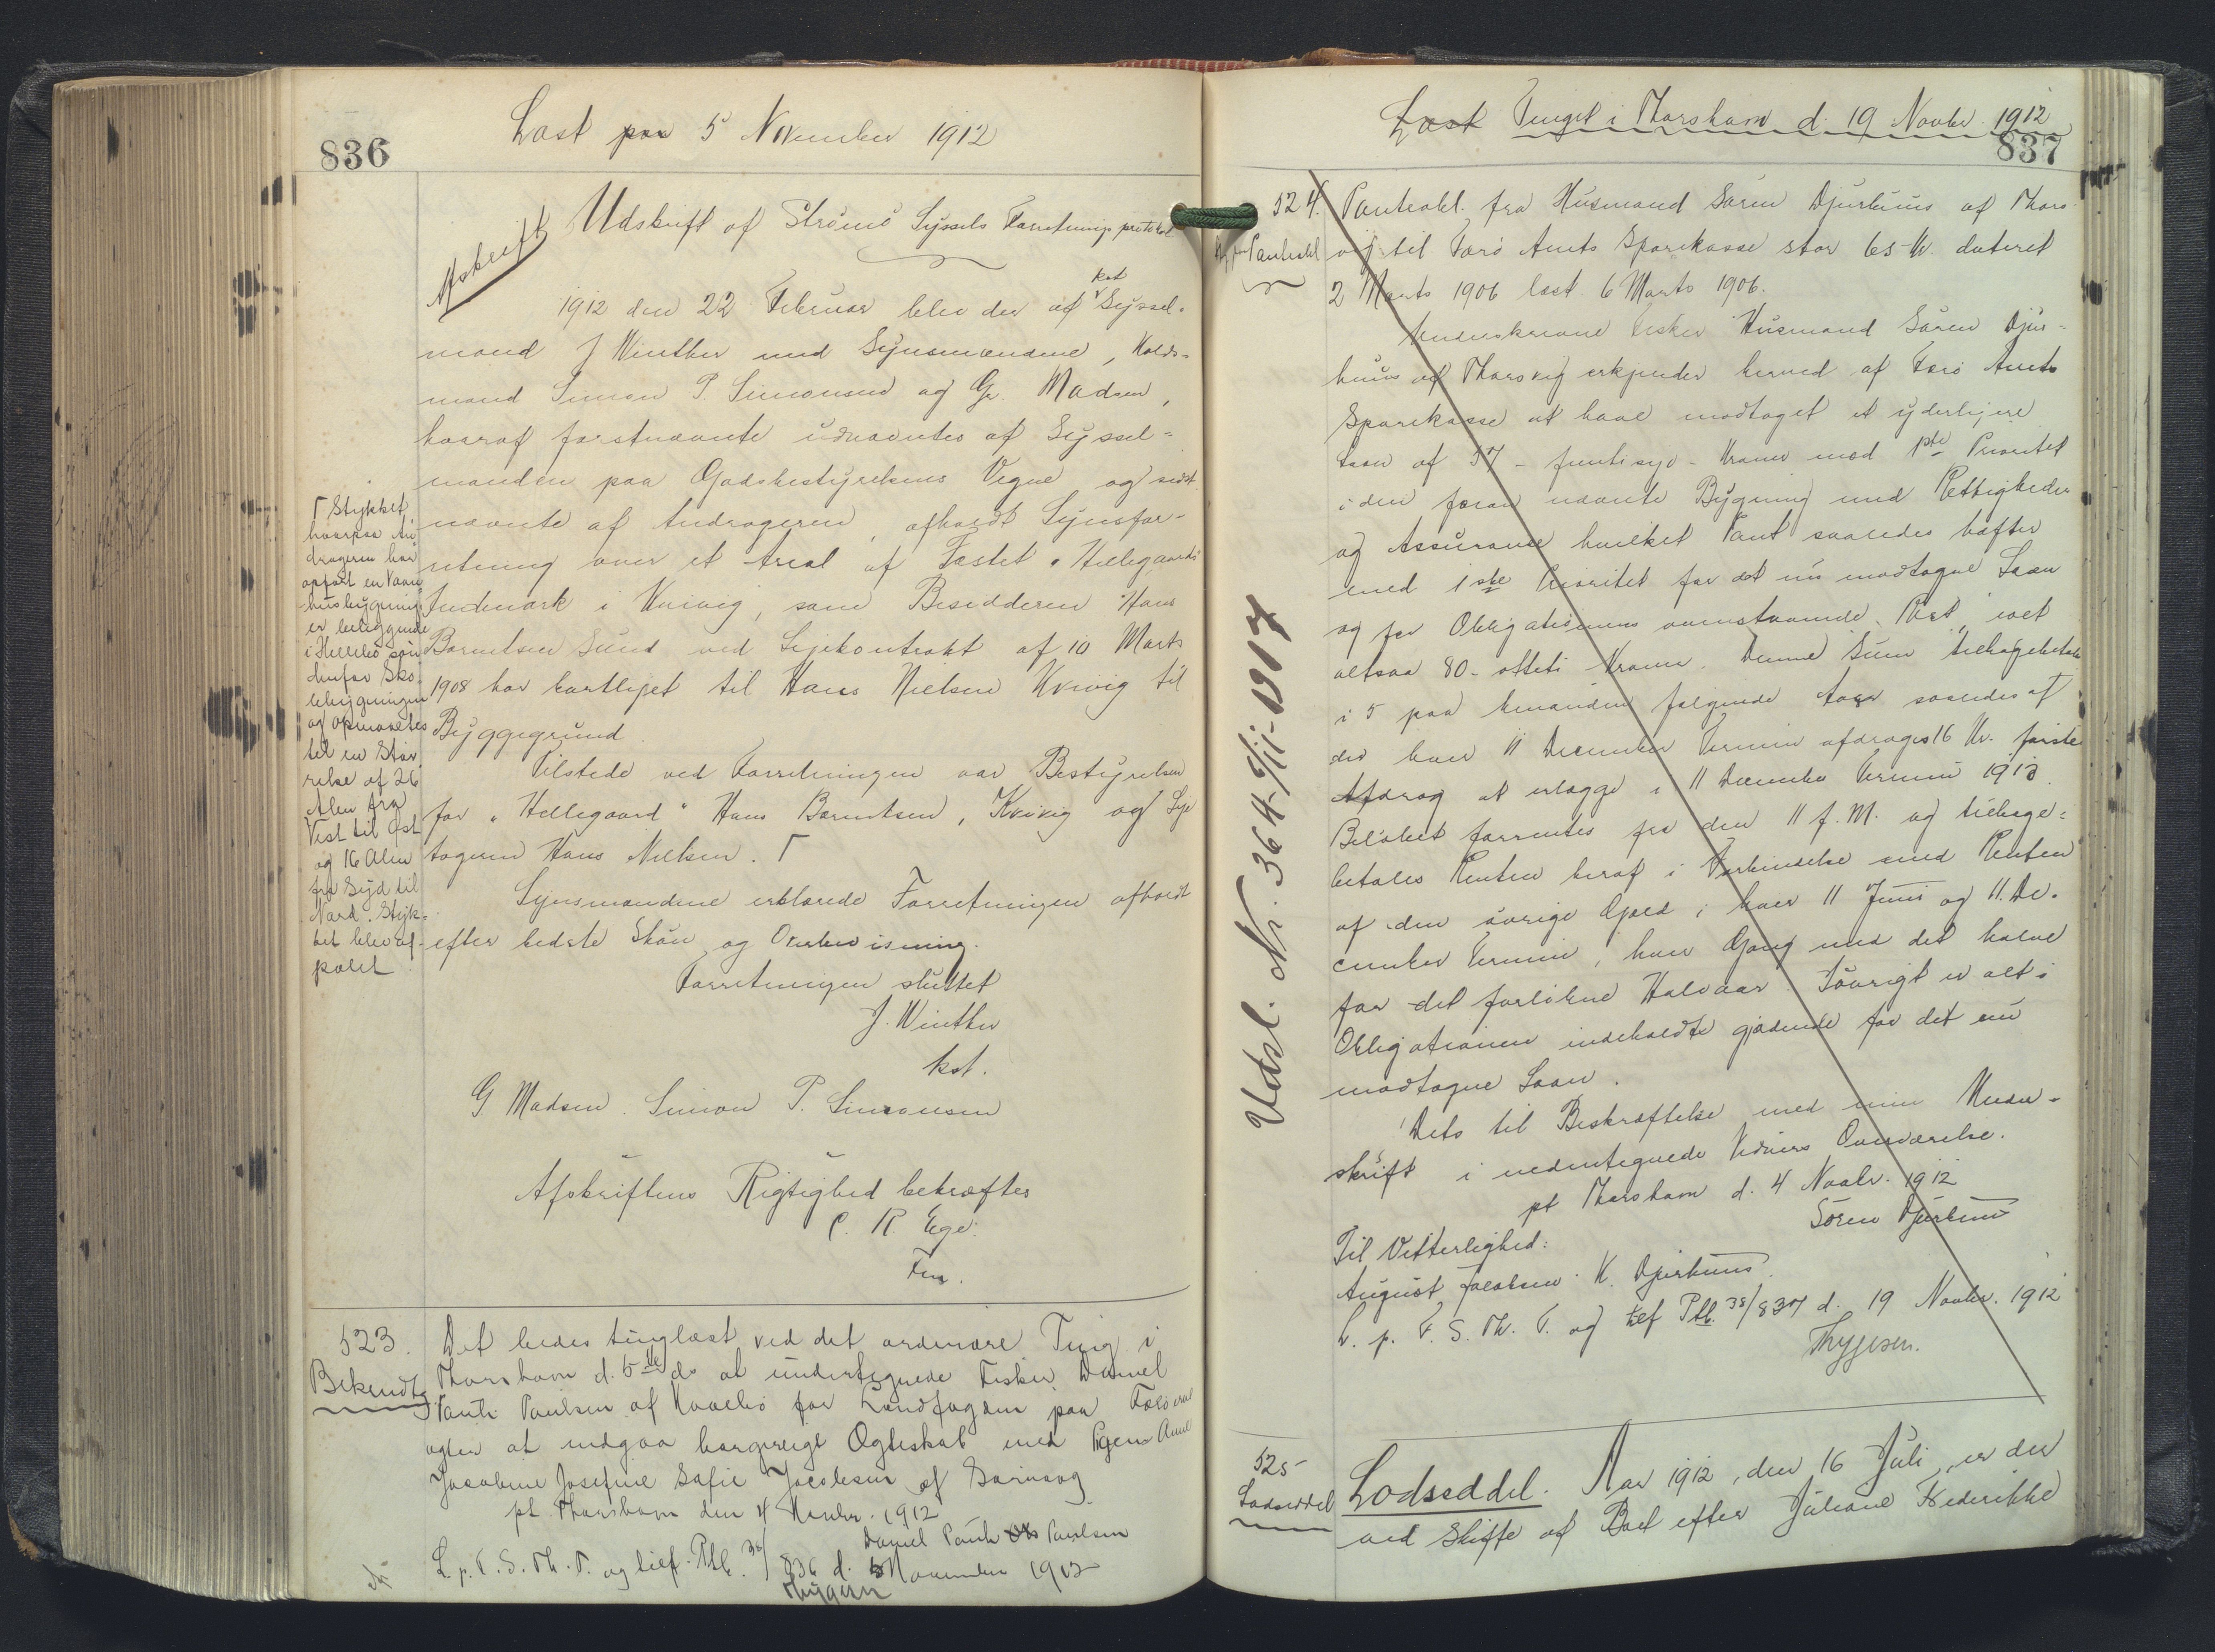 836
Læst paa 5 November 1912
Afskrift
Udskrift af Strømø Syssels Forretningsprotokol
1912 den 22 Februar blev der af kst Syssel-
mand J Winther med Synsmændene, Holds-
mand Simon P. Simonsen og G. Madsen,
hvoraf førstnævnte udnævntes af Syssel-
manden paa Godsbestyrelsens Vegne og sidst
nævnte af Andrageren, afholdt Synsfor-
retning over et Areal af Fæstet "Hellegaards"
Indmark i Kvivig, som Besidderen Hans
Barentsen Sund ved Lejekontrakt af 10 Marts
1908 har bortlejet til Hans Nielsen Kvivig til
Byggegrund.
Tilstede ved Forretningen var Bestyrelsen
for "Hellegaard" Hans Barentsen, Kvivig og Leje
tageren Hans Nielsen. Γ
Synsmændene erklærede Forretningen afholdt
efter bedste Skøn og Overbevisning.
Forretningen sluttet
J. Winther
kst.
G Madsen. Simon P. Simonsen
Afskriftens Rigtighed bekræftes
C. R. Ege.
Fm.
Γ Stykket
hvorpaa An
drageren har
opført en Vaane
husbygning
er beliggende
i Hellebø søn
denfor Sko
lebygningen
og opmaaltes
til en Stør
relse af 26
Alen fra
Vest til Øst
og 16 Alen
fra Syd til
Nord. Styk-
ket blev af-
pælet.
523.
Bekendtg.
Det bedes tinglæst ved det ordinære Ting i
Thorshavn d. 5te ds at undertegnede Fisker Daniel
Pauli Poulsen af Kvalbø for Landfogden paa Færø
agter at indgaa borgerligt Ægteskab med Pigen
Jacobine Josefine Sofie Jacobsen af Sørvaag
pt. Thorshavn den 4 Novbr. 1912
Daniel Pauli Poulsen
L. p. F. S. Th. T. og tilf. Ptb. 38/836 d. 5 November 1912
Thygesen
Læst Tinget i Thorshavn d. 19 Novbr. 1912
837
524.
Panteobl
Panteobl. fra Husmand Søren Djurhuus af Thors
vig til Færø Amts Sparekasse stor 65 Kr. dateret
2 Marts 1906 læst 6 Marts 1906.
Underskrevne Fisker Husmand Søren Djur-
huus af Thorsvig erkjender herved af Færø Amts
Sparekasse at have modtaget et yderligere
Laan af 57 - femtisyv - Kroner mod 1ste Prioritet
i den foran nævnte Bygning med Rettigheder
og Assurance hvilket Pant saaledes hæfter
med 1ste Prioritet for det nu modtagne Laan
og for Obligationens ovenstaaende Rest, ialt
altsaa 80 - otteti Kroner. Denne Sum tilbagebetales
i 5 paa hinanden følgende Aar saaledes at
der hver 11 December Termin afdrages 16 Kr. første
Afdrag at erlægge i 11 December Termin 1913.
Beløbet forrentes fra den 11 f. M. og tilbage-
betales Renten heraf i Forbindelse med Renten
af den øvrige Gjæld i hver 11 Juni og 11. De-
cember Termin, hver Gang med det halve
for det forløbne Halvaar. Iøvrigt er alt i
Obligationen indeholdte gjældende for det nu
modtagne Laan.
Dets til Bekræftelse med min Under-
skrift i nedentegnede Vidners Overværelse.
pt Thorshavn d. 4 Novbr. 1912
Søren Djurhuus
Til Vitterlighed:
August Jacobsen K. Djurhuus.
L. p. F. S. Th. T. og tilf Ptb. 38/837 d. 19 Novbr. 1912
Thygesen.
Udsl. Nr. 364-9/11-1917
525
Lodseddel
Lodseddel. Aar 1912, den 16 Juli, er der
ved Skifte af Boet efter Juliane Frederikke